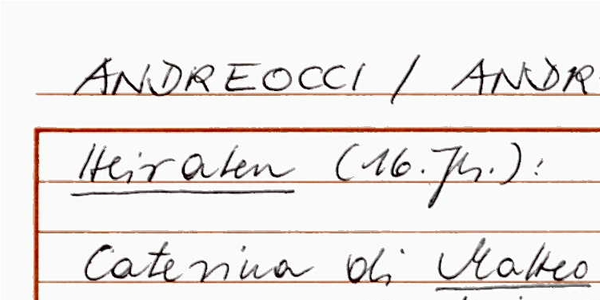 ANDREOCCI / ANDR
Heiraten (16. Jh.):
Caterina di Matteo